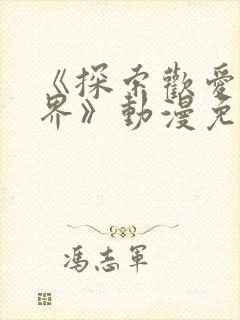 《探索歡愛
界》動漫免
馮志軍